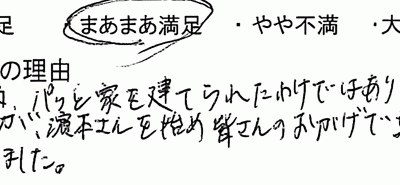 足 まあまあ満足 ・やや不満 ・大
の理由
パッと家を建てられたわけではあり
が、濱本さんを始め皆さんのおかげで
ました。